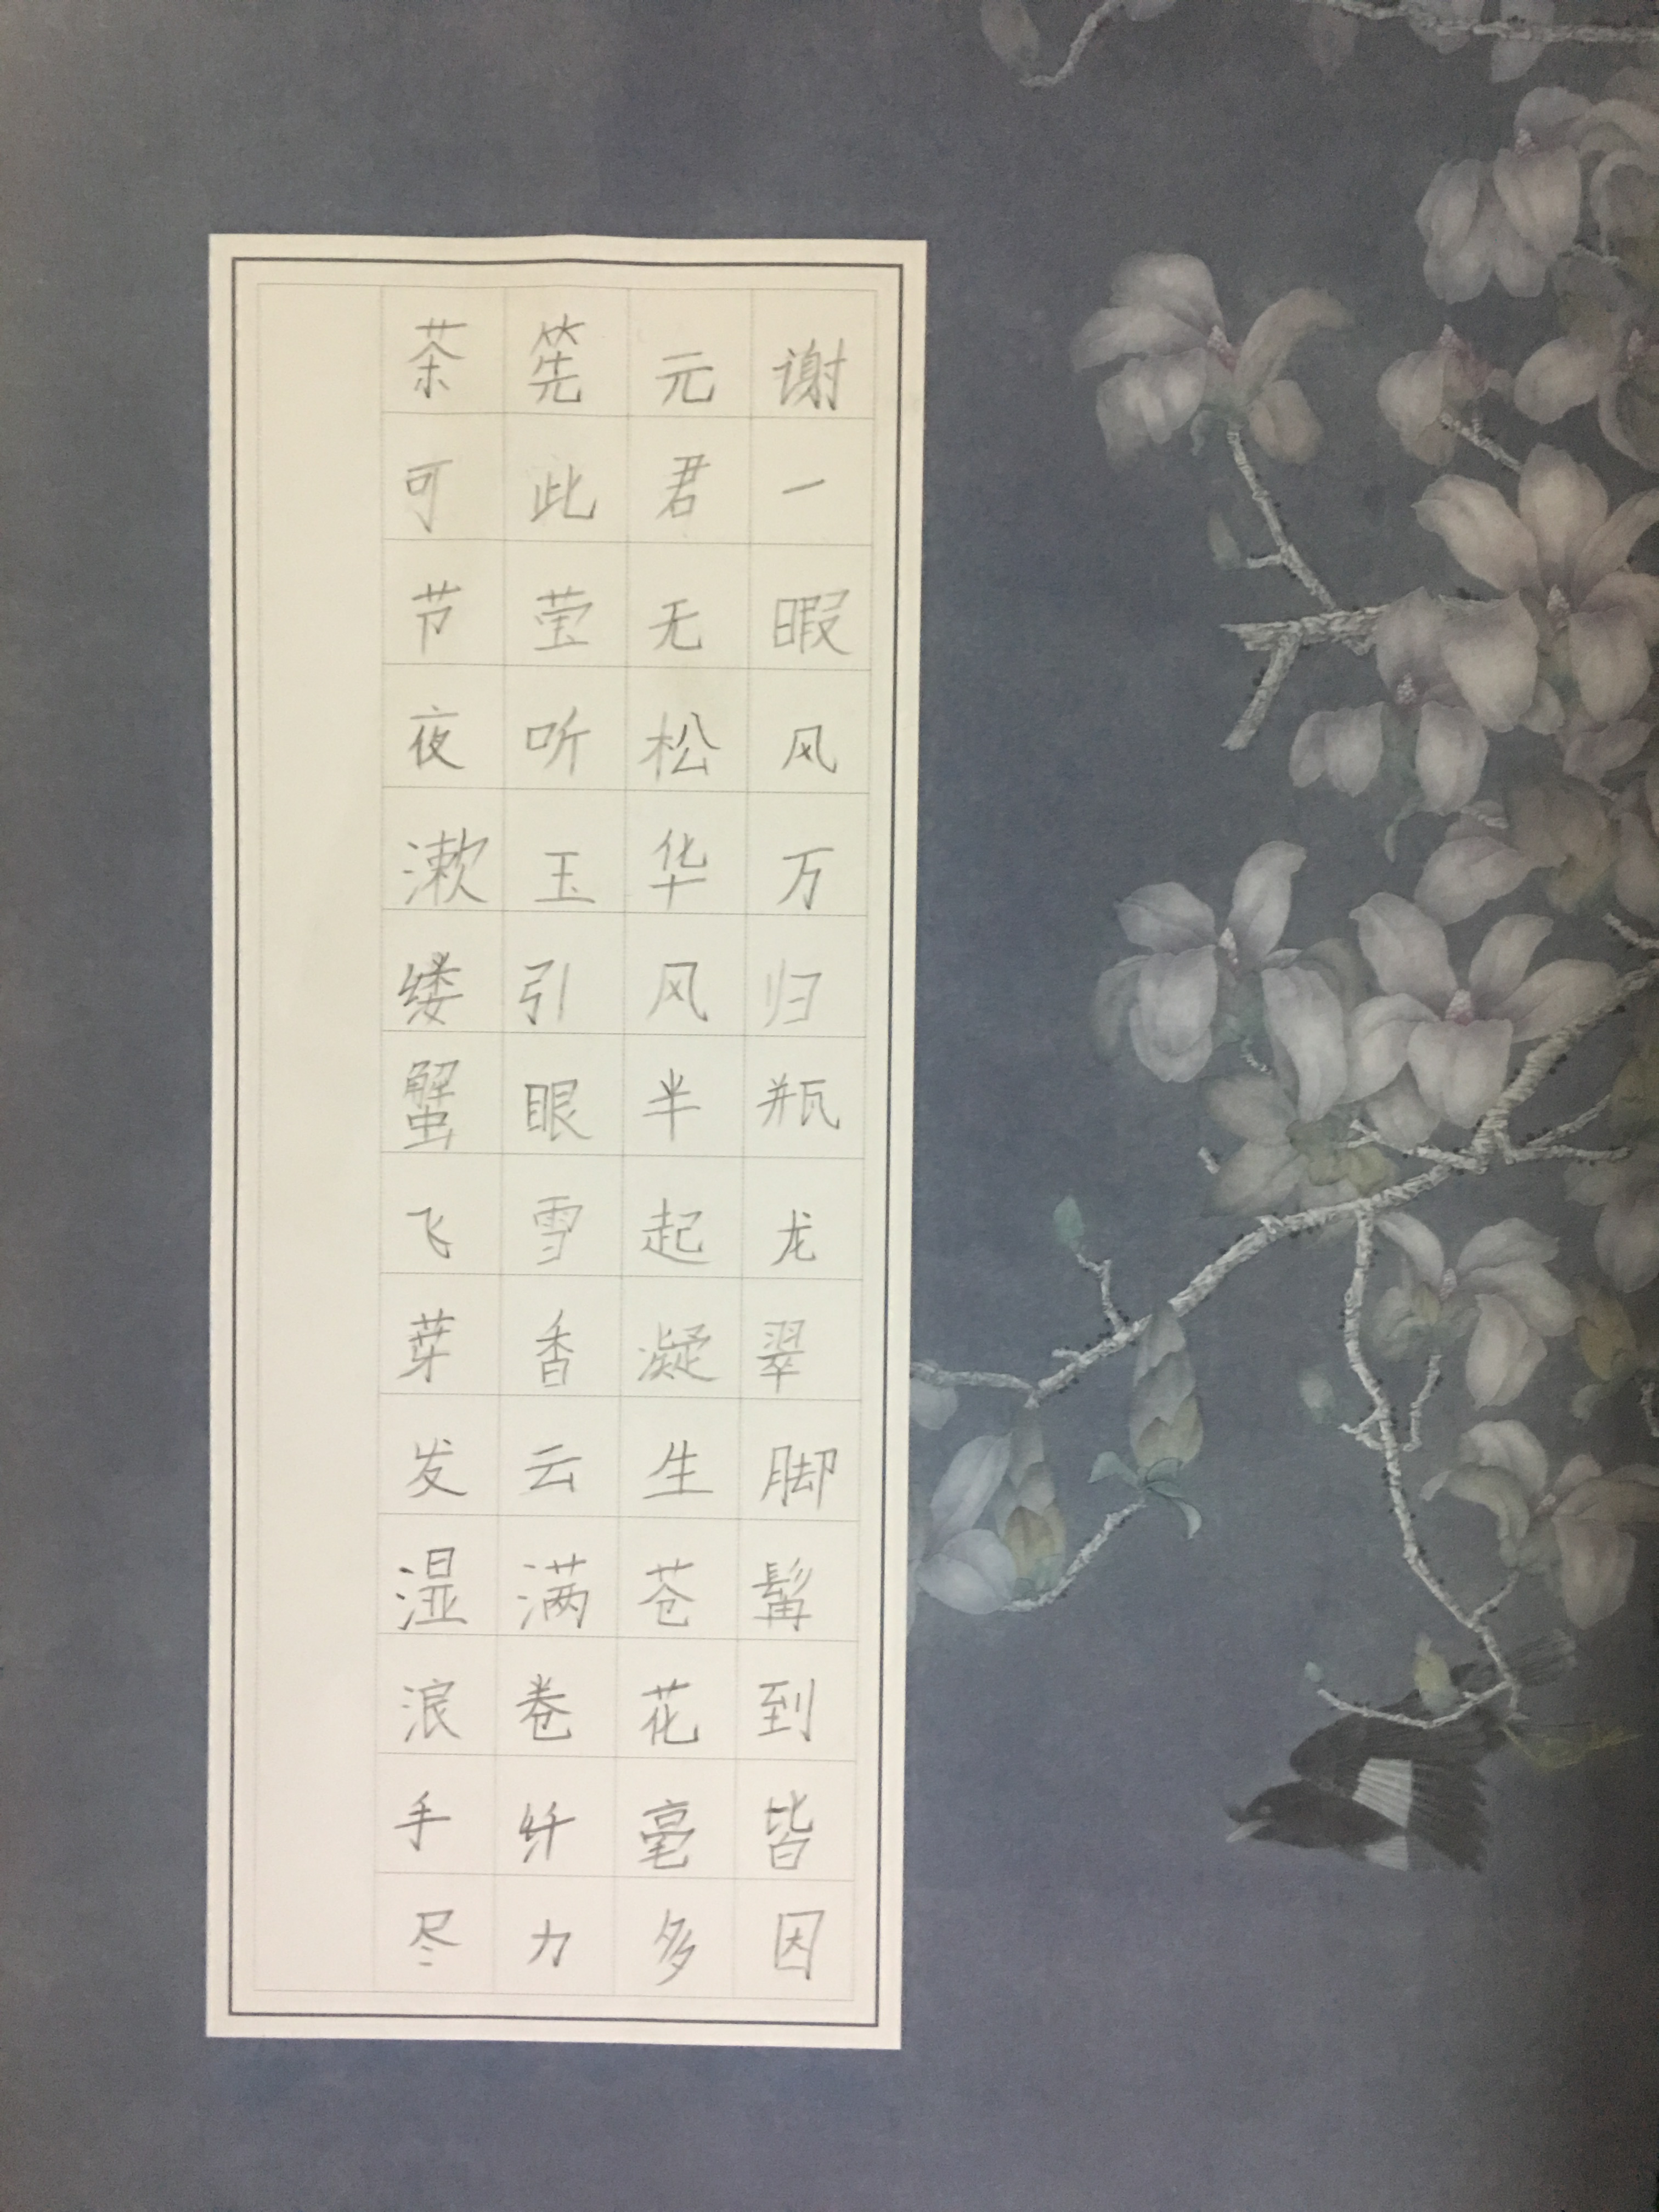 茶筅元谢
可此君一
节莹无暇
夜听松风
漱玉华万
缕引风归
蟹眼半瓶
飞雪起龙
芽香凝翠
发云生脚
湿满苍髯
浪卷花到
手纤毫皆
尽力多因